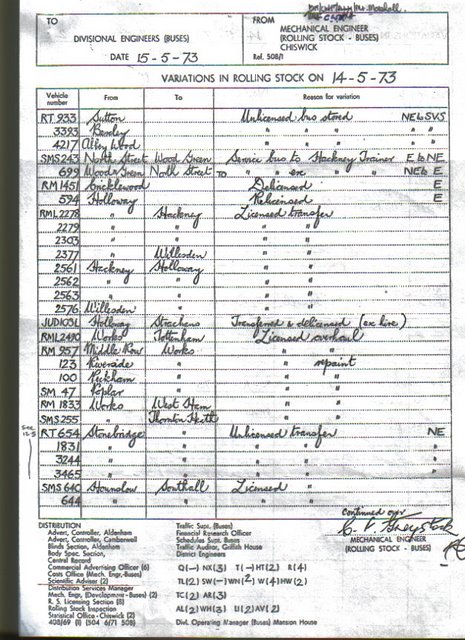 TO
DIVISIONAL ENGINEERS (BUSES)
DATE 15-5-73
FROM
MECHANICAL ENGINEER
(ROLLING STOCK - BUSES)
CHISWICK
Ref. 508/1
VARIATIONS IN ROLLING STOCK ON 14-5-73
Vehicle number From To Reason for variation
RT 933 Sutton Unlicensed bus stored NE to SVS
3393 Bexley " " " " "
4217 Abbey Wood " " " " "
SMS 243 North Street Wood Green Service bus to Hackney Trainer E to NE
699 Wood Green North Street TO " " ex " " NE to E
RM 1451 Cricklewood Delicensed E
594 Holloway Relicensed E
RML 2278 " Hackney Licensed transfer
2279 " " " "
2303 " " " "
2377 " Willesden " "
2561 Hackney Holloway " "
2562 " " " "
2563 " " " "
2576 Willesden " " "
JUD 103L Holloway Strachans Transferred & delicensed (ex hire)
RML 2490 Works Tottenham Licensed overhaul
RM 957 Middle Row Works " "
123 Riverside " " repaint
100 Peckham " " "
SM 47 Poplar " " "
RM 1833 Works West Ham " "
SMS 255 " Thornton Heath " "
See 12.5
RT 654 Stonebridge " Unlicensed transfer NE
1831 " " " " "
3244 " " " " "
3465 " " " " "
SMS 640 Hounslow Southall Licensed "
644 " " " "
Continued over
MECHANICAL ENGINEER
(ROLLING STOCK - BUSES)
DISTRIBUTION
Advert, Controller, Aldenham
Advert, Controller, Camberwell
Blinds Section, Aldenham
Body Spec, Section,
Central Record
Commercial Advertising Officer (6)
Costs Office (Mech. Engr.-Buses)
Scientific Adviser (2)
Distribution Services Manager
Mech. Engr, (Development - Buses) (2)
R. S. Licensing Section (8)
Rolling Stock Inspection
Statistical Office - Chiswick (2)
408/69 (1) (504 6/71 508)
Traffic Supt. (Buses)
Financial Research Officer
Schedules Supt. Buses
Traffic Auditor, Griffith House
District Engineers
Q(-) NX(3) T(-) HT(2) R(4)
TL(2) SW(-) WN(2) W(4) HW(2)
TC(2) AR(3)
AL(2) WH(3) U(2) AV(2)
Divl. Operating Manager (Buses) Mansion House